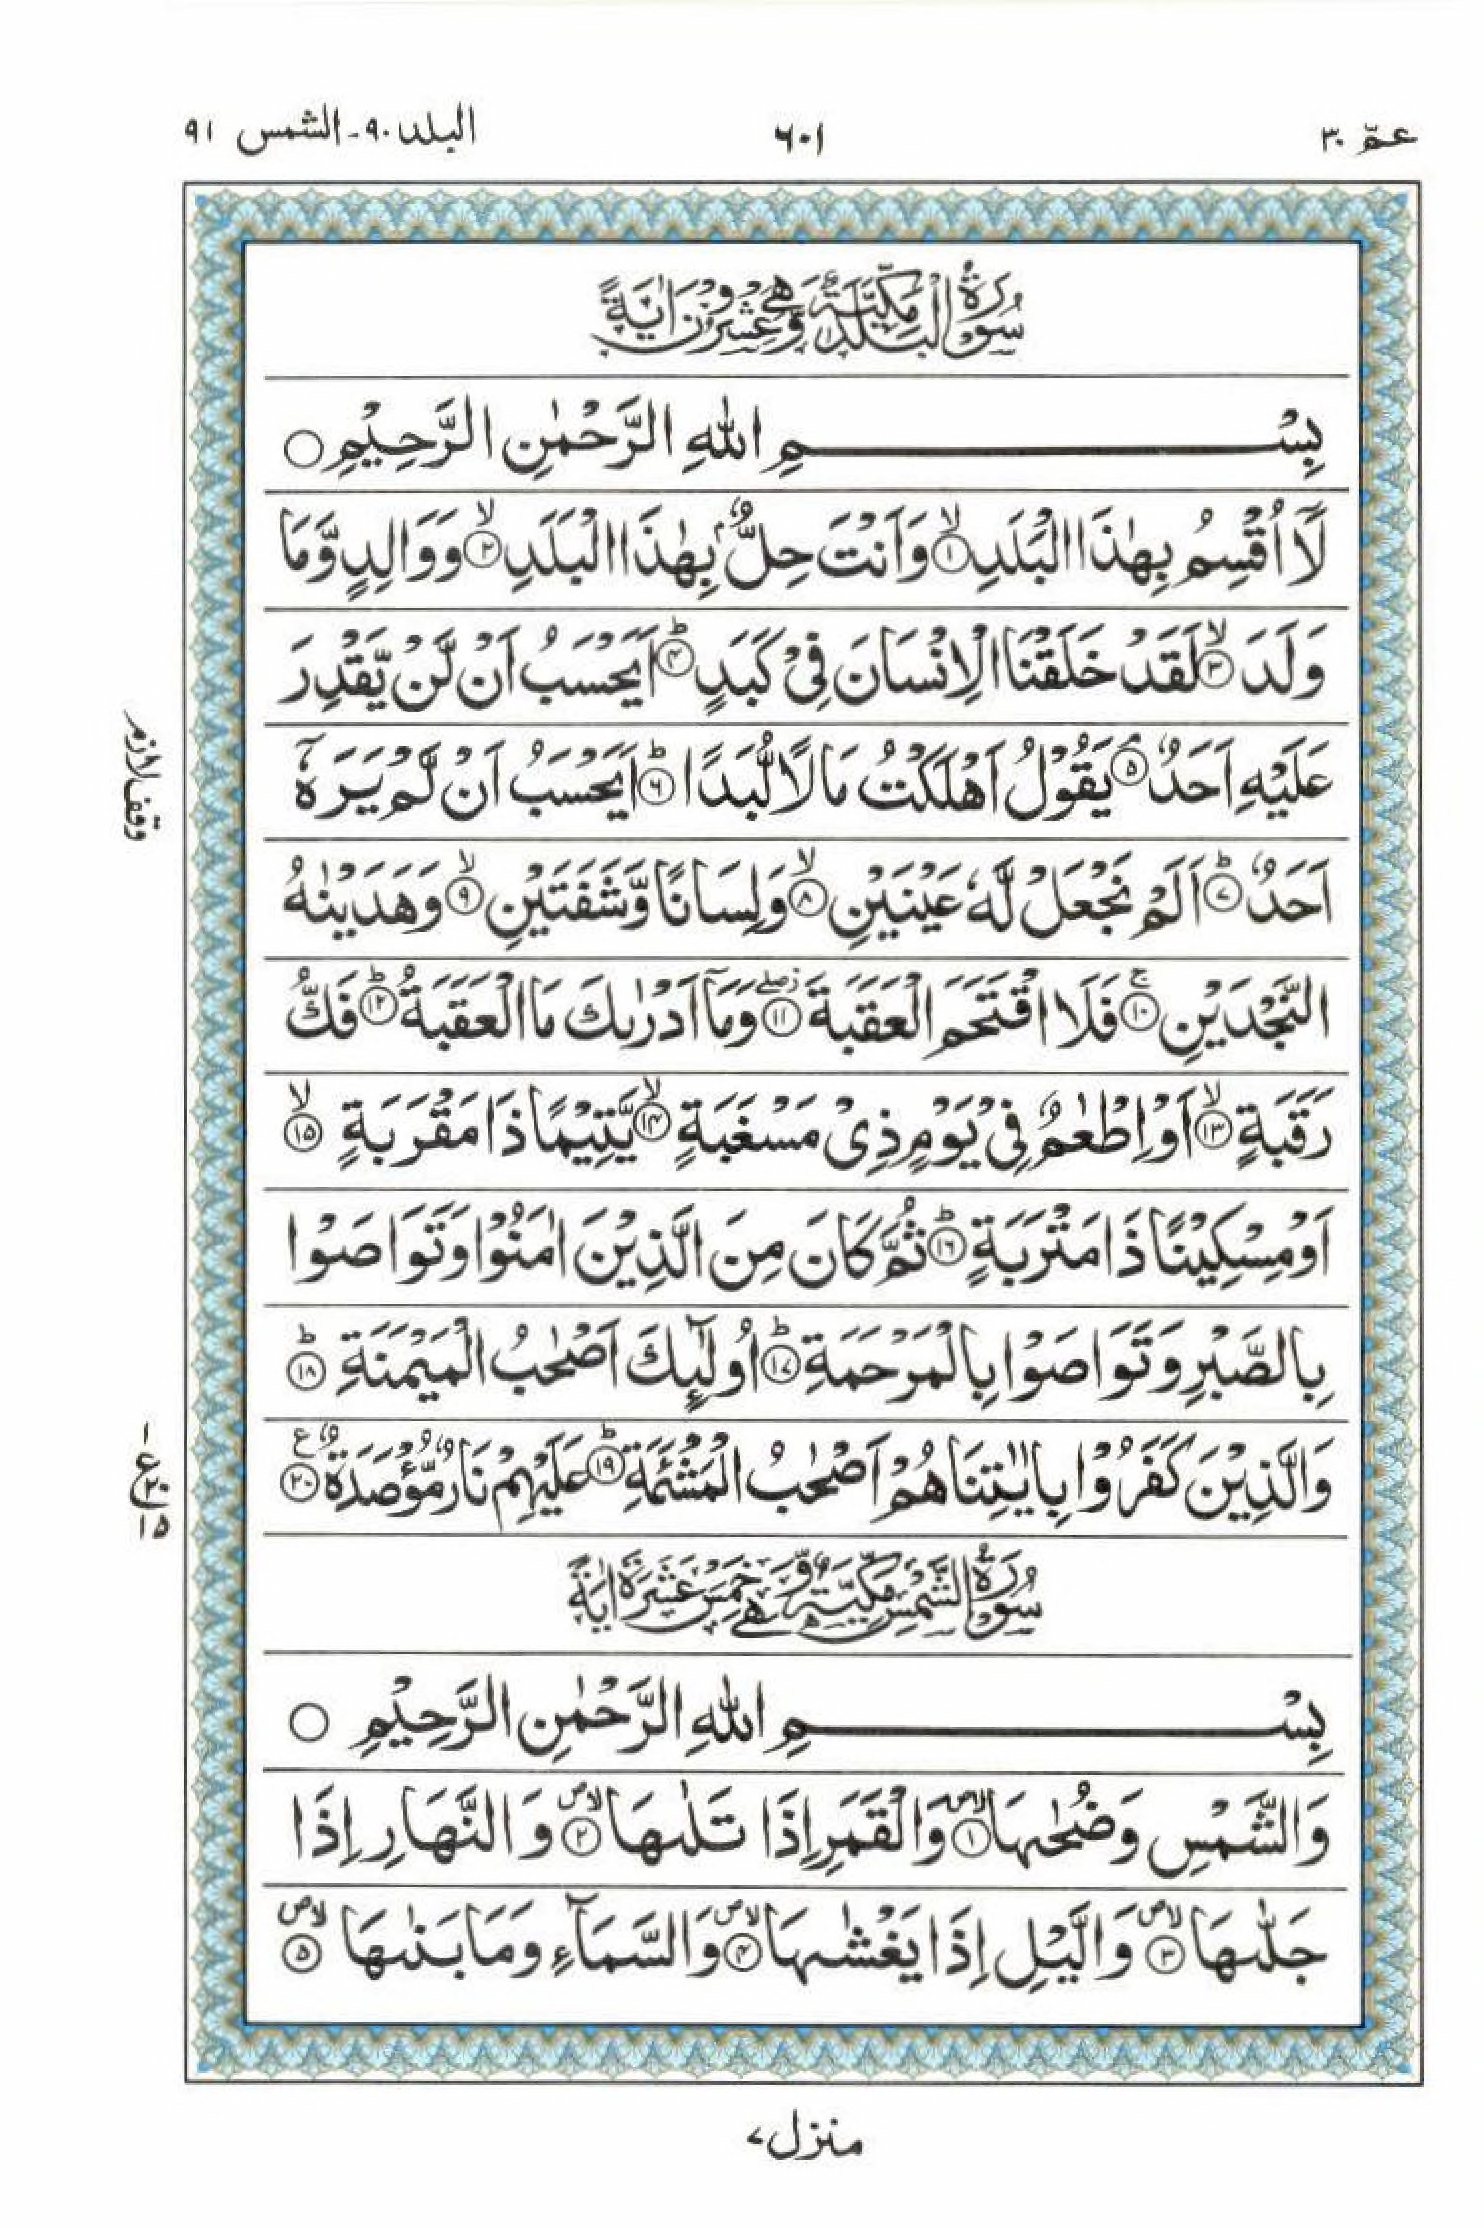 عمّ ٣٠
٦٠١
البلد ٩٠ - الشمس ٩١
سُوْرَةُ الْبَلَدِ مَكِّيَّةٌ وَّهِيَ عِشْرُوْنَ اٰيَةً
بِسْمِ اللّٰهِ الرَّحْمٰنِ الرَّحِيْمِ ○
لَآ اُقْسِمُ بِهٰذَا الْبَلَدِ ۙ﴿۱﴾ وَاَنْتَ حِلٌّۢ بِهٰذَا الْبَلَدِ ۙ﴿۲﴾ وَوَالِدٍ وَّمَا
وَلَدَ ۙ﴿۳﴾ لَقَدْ خَلَقْنَا الْاِنْسَانَ فِىْ كَبَدٍ ؕ﴿۴﴾ اَيَحْسَبُ اَنْ لَّنْ يَّقْدِرَ
عَلَيْهِ اَحَدٌ ۘ﴿۵﴾ يَقُوْلُ اَهْلَكْتُ مَالًا لُّبَدًا ؕ﴿۶﴾ اَيَحْسَبُ اَنْ لَّمْ يَرَهٗۤ
اَحَدٌ ؕ﴿۷﴾ اَلَمْ نَجْعَلْ لَّهٗ عَيْنَيْنِ ۙ﴿۸﴾ وَلِسَانًا وَّشَفَتَيْنِ ۙ﴿۹﴾ وَهَدَيْنٰهُ
النَّجْدَيْنِ ۚ﴿۱۰﴾ فَلَا اقْتَحَمَ الْعَقَبَةَ ۖ﴿۱۱﴾ وَمَاۤ اَدْرٰىكَ مَا الْعَقَبَةُ ؕ﴿۱۲﴾ فَكُّ
رَقَبَةٍ ۙ﴿۱۳﴾ اَوْ اِطْعٰمٌ فِىْ يَوْمٍ ذِىْ مَسْغَبَةٍ ۙ﴿۱۴﴾ يَّتِيْمًا ذَا مَقْرَبَةٍ ۙ﴿۱۵﴾
اَوْ مِسْكِيْنًا ذَا مَتْرَبَةٍ ؕ﴿۱۶﴾ ثُمَّ كَانَ مِنَ الَّذِيْنَ اٰمَنُوْا وَتَوَاصَوْا
بِالصَّبْرِ وَتَوَاصَوْا بِالْمَرْحَمَةِ ؕ﴿۱۷﴾ اُولٰٓئِكَ اَصْحٰبُ الْمَيْمَنَةِ ؕ﴿۱۸﴾
وَالَّذِيْنَ كَفَرُوْا بِاٰيٰتِنَا هُمْ اَصْحٰبُ الْمَشْئَمَةِ ؕ﴿۱۹﴾ عَلَيْهِمْ نَارٌ مُّؤْصَدَةٌ ﴿۲۰﴾ ع
سُوْرَةُ الشَّمْسِ مَكِّيَّةٌ وَّهِيَ خَمْسَ عَشْرَةَ اٰيَةً
بِسْمِ اللّٰهِ الرَّحْمٰنِ الرَّحِيْمِ ○
وَالشَّمْسِ وَضُحٰىهَا ﴿۱﴾ لاص وَالْقَمَرِ اِذَا تَلٰىهَا ﴿۲﴾ لاص وَالنَّهَارِ اِذَا
جَلّٰىهَا ﴿۳﴾ لاص وَالَّيْلِ اِذَا يَغْشٰىهَا ﴿۴﴾ لاص وَالسَّمَآءِ وَمَا بَنٰىهَا ﴿۵﴾ لاص
وقف لازم
١
ع ٢٠
١٥
منزل ٧